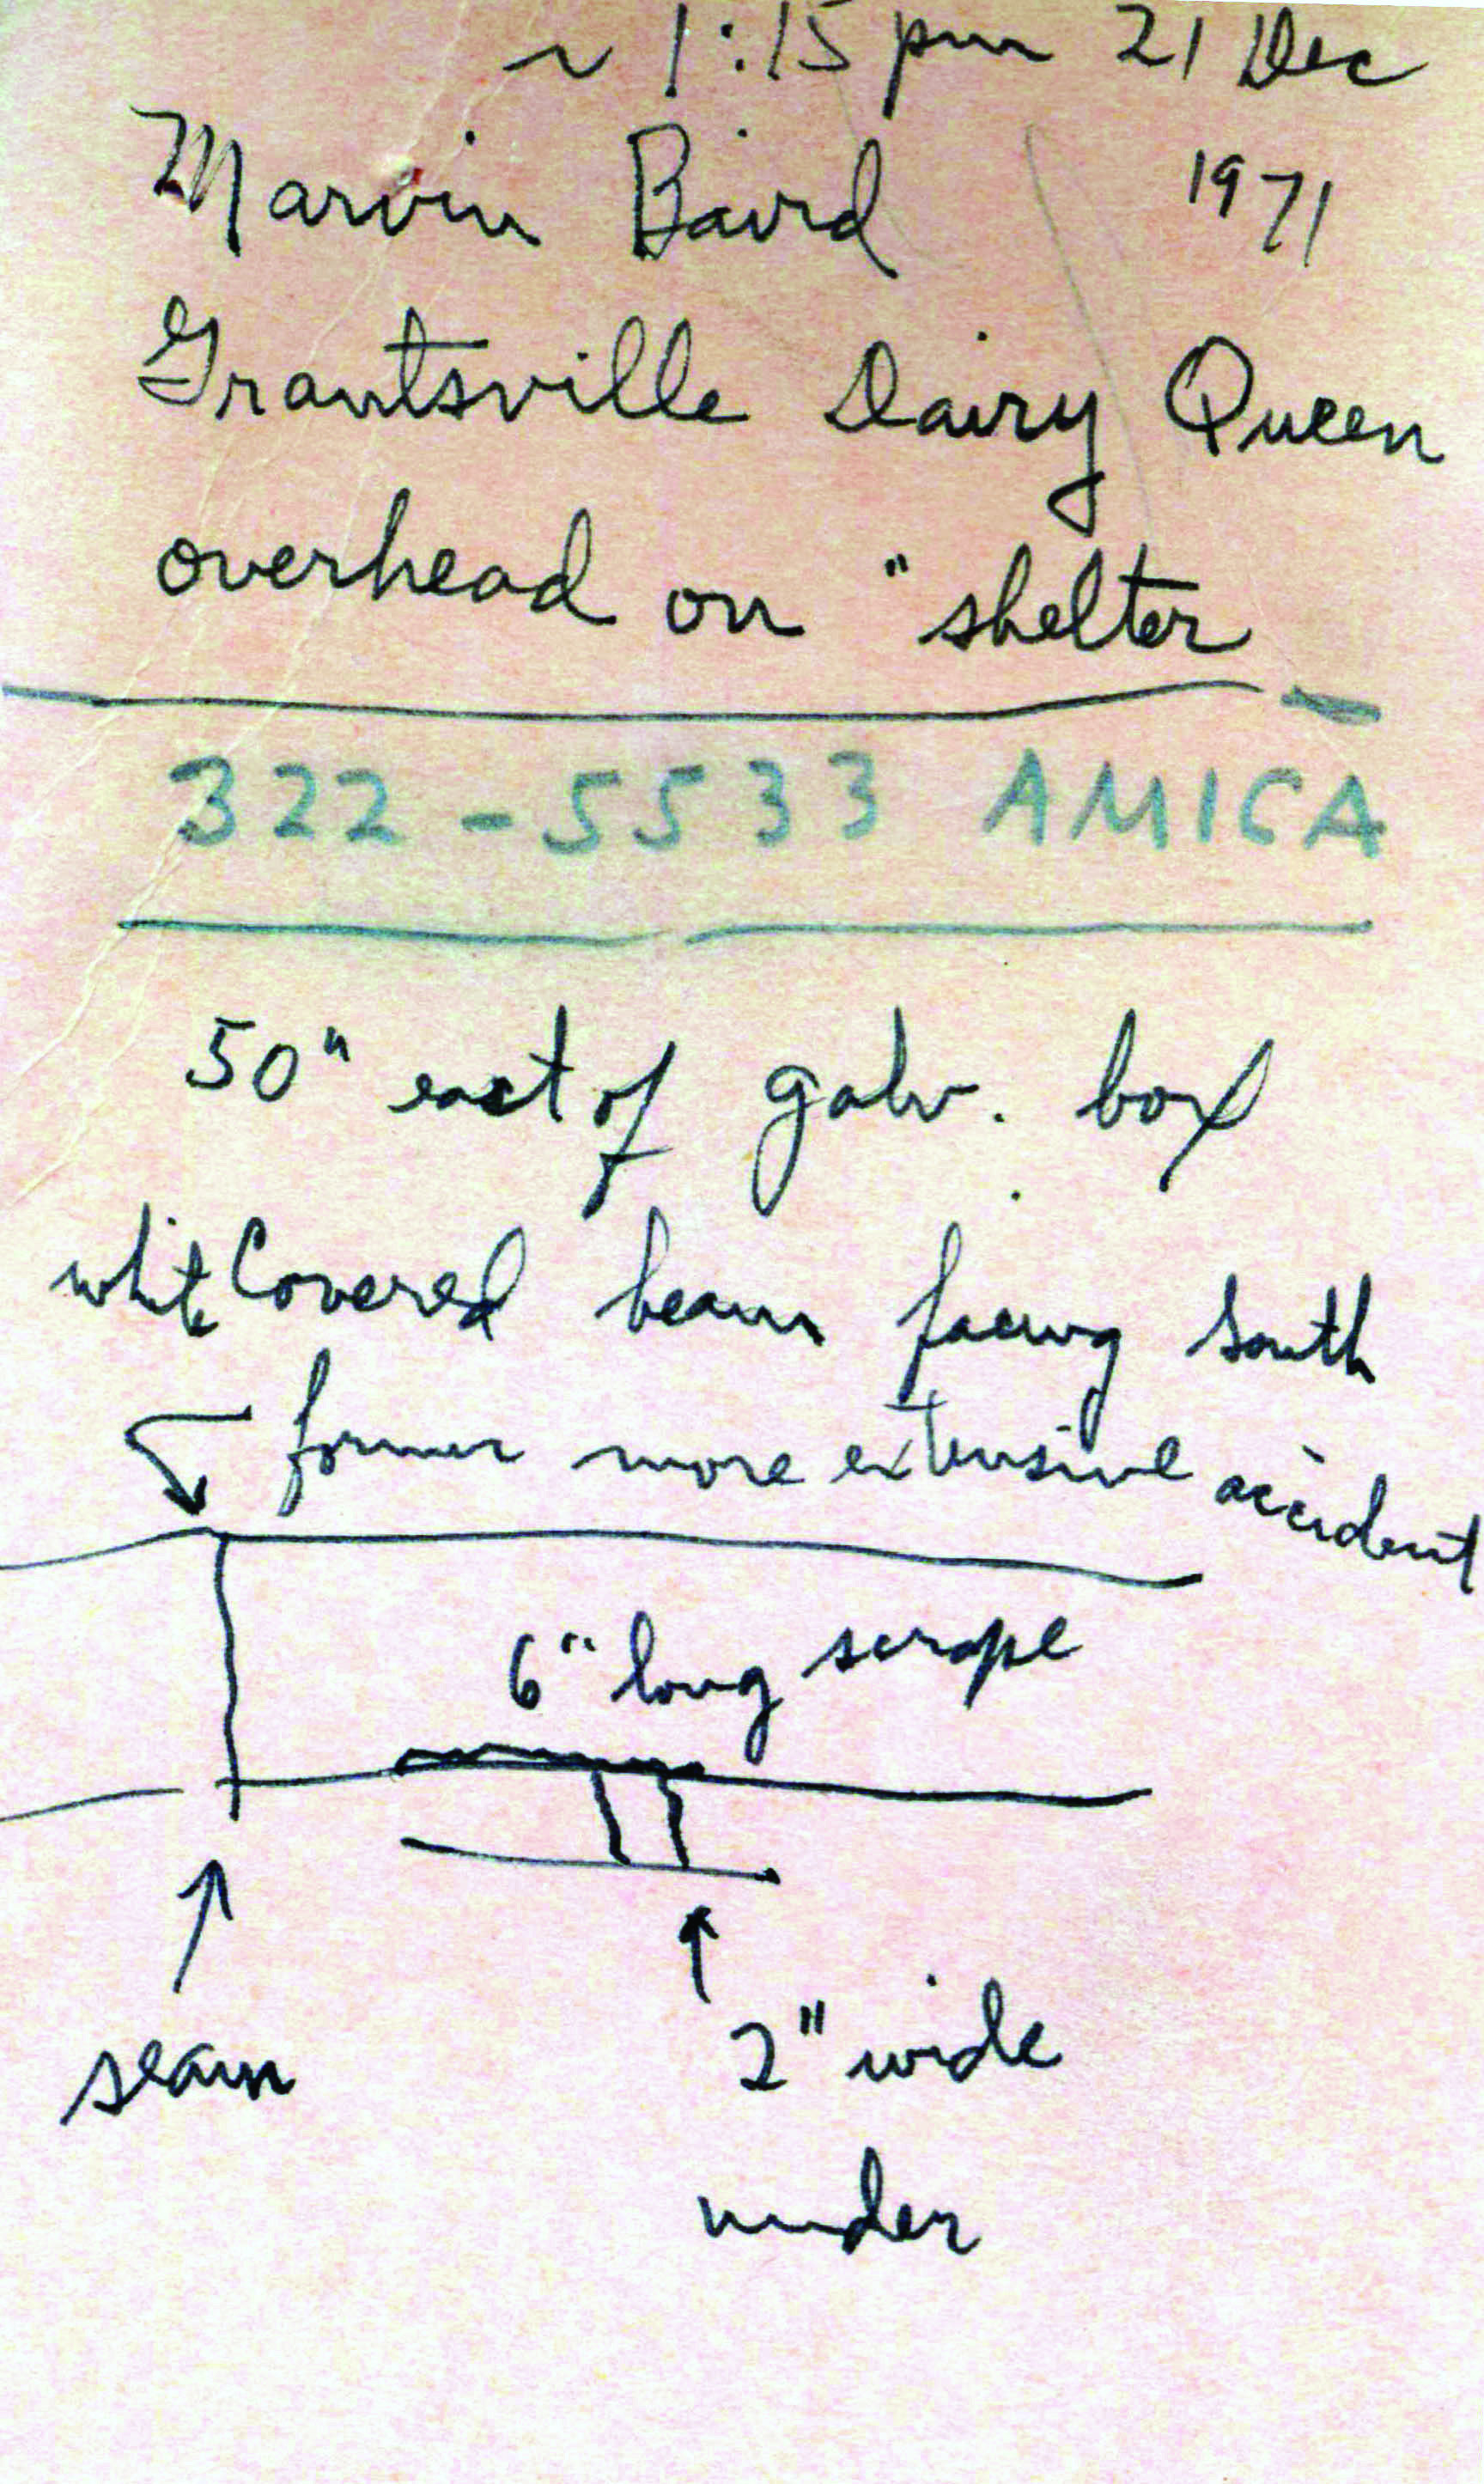 ~ 1:15 pm 21 Dec
Marvin Baird 1971
Grantsville Dairy Queen
overhead on "shelter
322-5533 AMICA
50" east of galv. box
white Covered beam facing south
former more extensive accident
6" long scrape
seam
2" wide
under